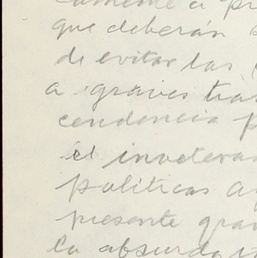 que deberán
de evitar las
a graves tras
cendencia p
el inveteras
políticas a
presente gra
la absurda